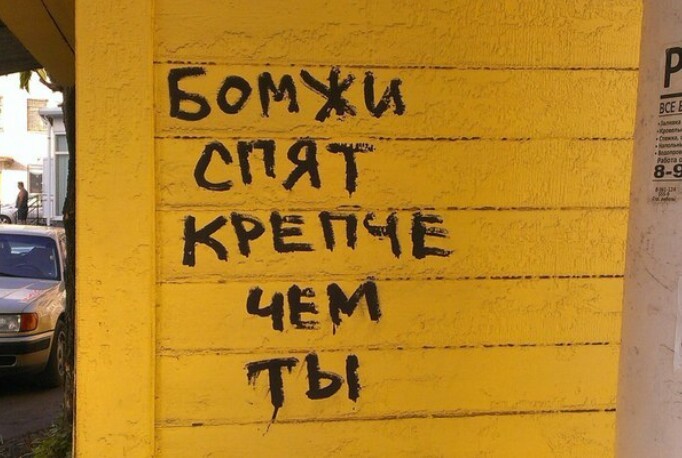 БОМЖИ
СПЯТ
КРЕПЧЕ
ЧЕМ
ТЫ
ВСЕ
8-9